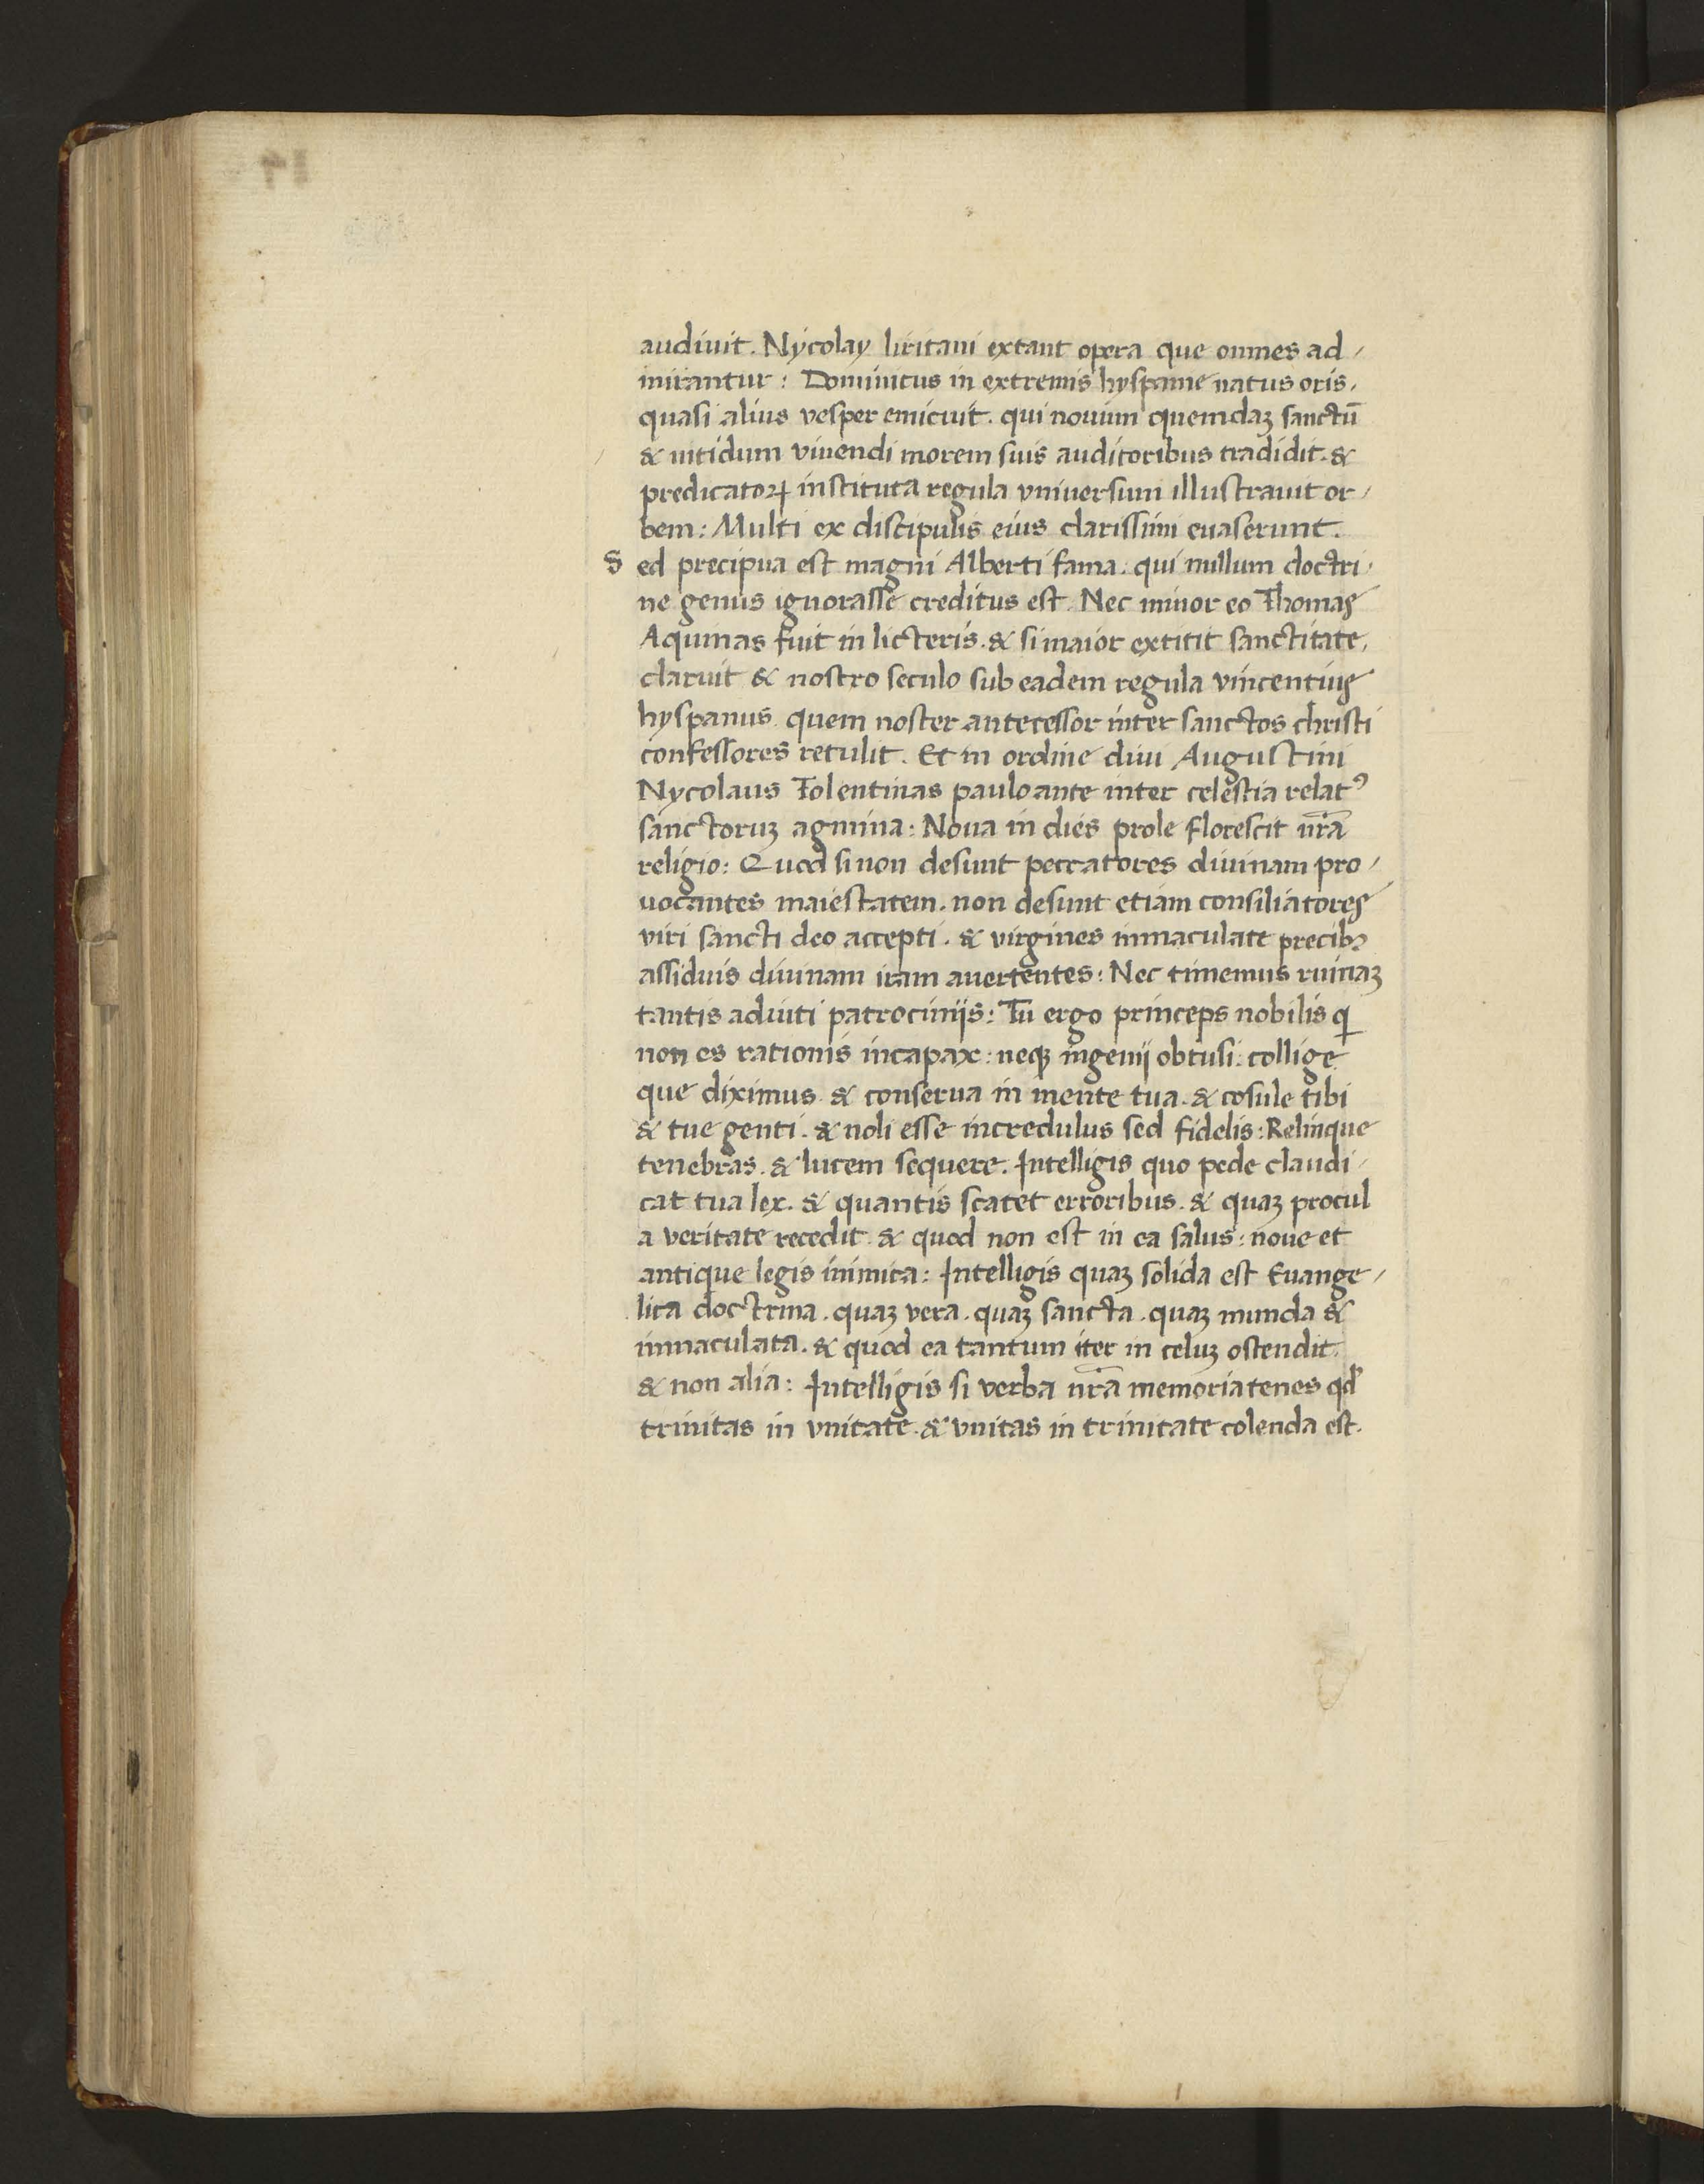 audiuit. Nycolay liritani extant opera que omnes ad/
mirantur: Dominicus in extremis hyspanie natus oris.
quasi alius vesper emicuit. qui nouum quemdaʒ sanctū
& nitidum viuendi morem suis auditoribus tradidit. &
predicatoꝝ instituta regula vniuersum illustrauit or/
bem: Multi ex discipulis eius clarissimi euaserunt.
S ed precipua est magni Alberti fama. qui nullum doctri/
ne genus ignorasse creditus est. Nec minor eo Thomas
Aquinas fuit in licteris. & si maior extitit sanctitate,
claruit & nostro seculo sub eadem regula vincentius
hyspanus quem noster antecessor inter sanctos christi
confessores retulit. Et in ordine diui Augustini
Nycolaus Tolentinas paulo ante inter celestia relatꝰ
sanctoruʒ agmina: Noua in dies prole florescit nr̄a
religio: Quod si non desunt peccatores diuinam pro/
uocantes maiestatem. non desunt etiam consiliatores
viri sancti deo accepti. & virgines inmaculate precibꝰ
assiduis diuinam iram auertentes: Nec timemus ruinaʒ
tantis adiuti patrociniis: Tu ergo princeps nobilis qi
non es rationis incapax: neqʒ ingenij obtusi: collige
que diximus & conserua in mente tua. & cosule tibi
& tue genti. & noli esse incredulus sed fidelis: Relinque
tenebras. & lucem sequere. Intelligis quo pede claudi/
cat tua lex. & quantis scatet erroribus. & quaʒ procul
a veritate recedit. & quod non est in ea salus: noue et
antique legis inimica: Intelligis quaʒ solida est Euange/
lica doctrina. quaʒ vera. quaʒ sancta. quaʒ munda &
inmaculata. & quod ea tantum iter in celuʒ ostendit.
& non alia: Intelligis si verba nr̄a memoria tenes qd'
trinitas in vnitate. & vnitas in trinitate colenda est.